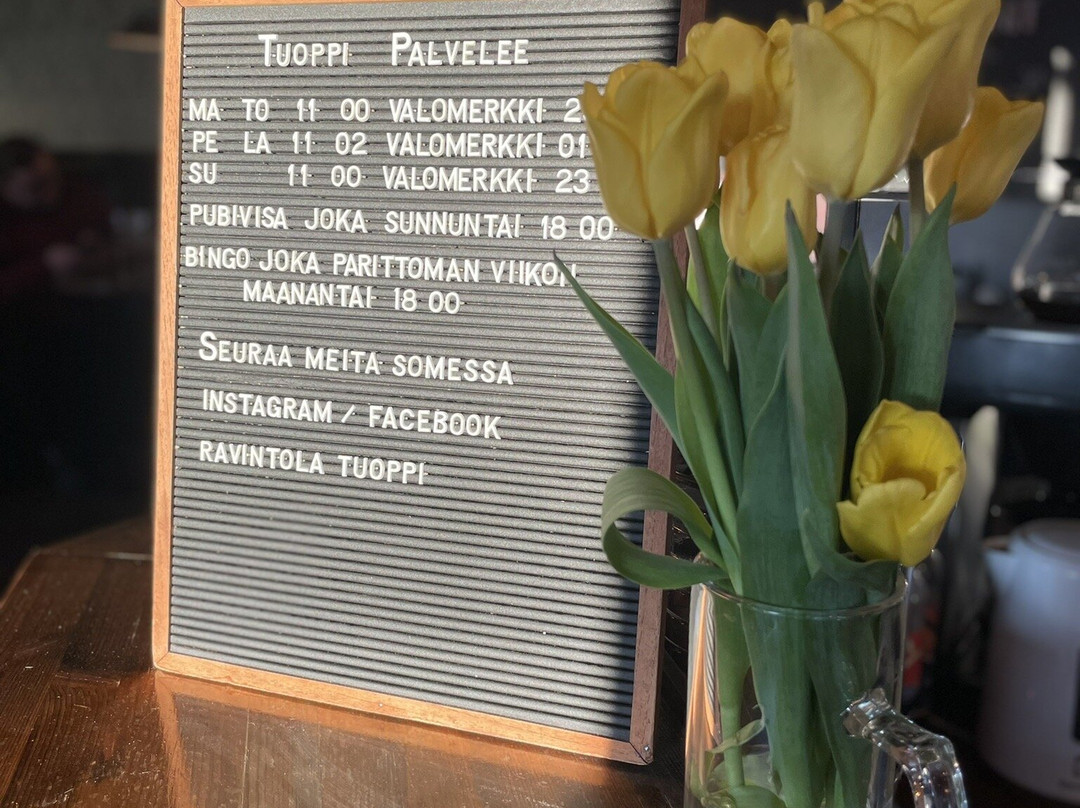 Tuoppi Palvelee
MA TO 11 00 VALOMERKKI 2
PE LA 11 02 VALOMERKKI 01
SU 11 00 VALOMERKKI 23
PUBIVISA JOKA SUNNUNTAI 18 00
BINGO JOKA PARITTOMAN VIIKON
MAANANTAI 18 00
SEURAA MEITA SOMESSA
INSTAGRAM / FACEBOOK
RAVINTOLA TUOPPI